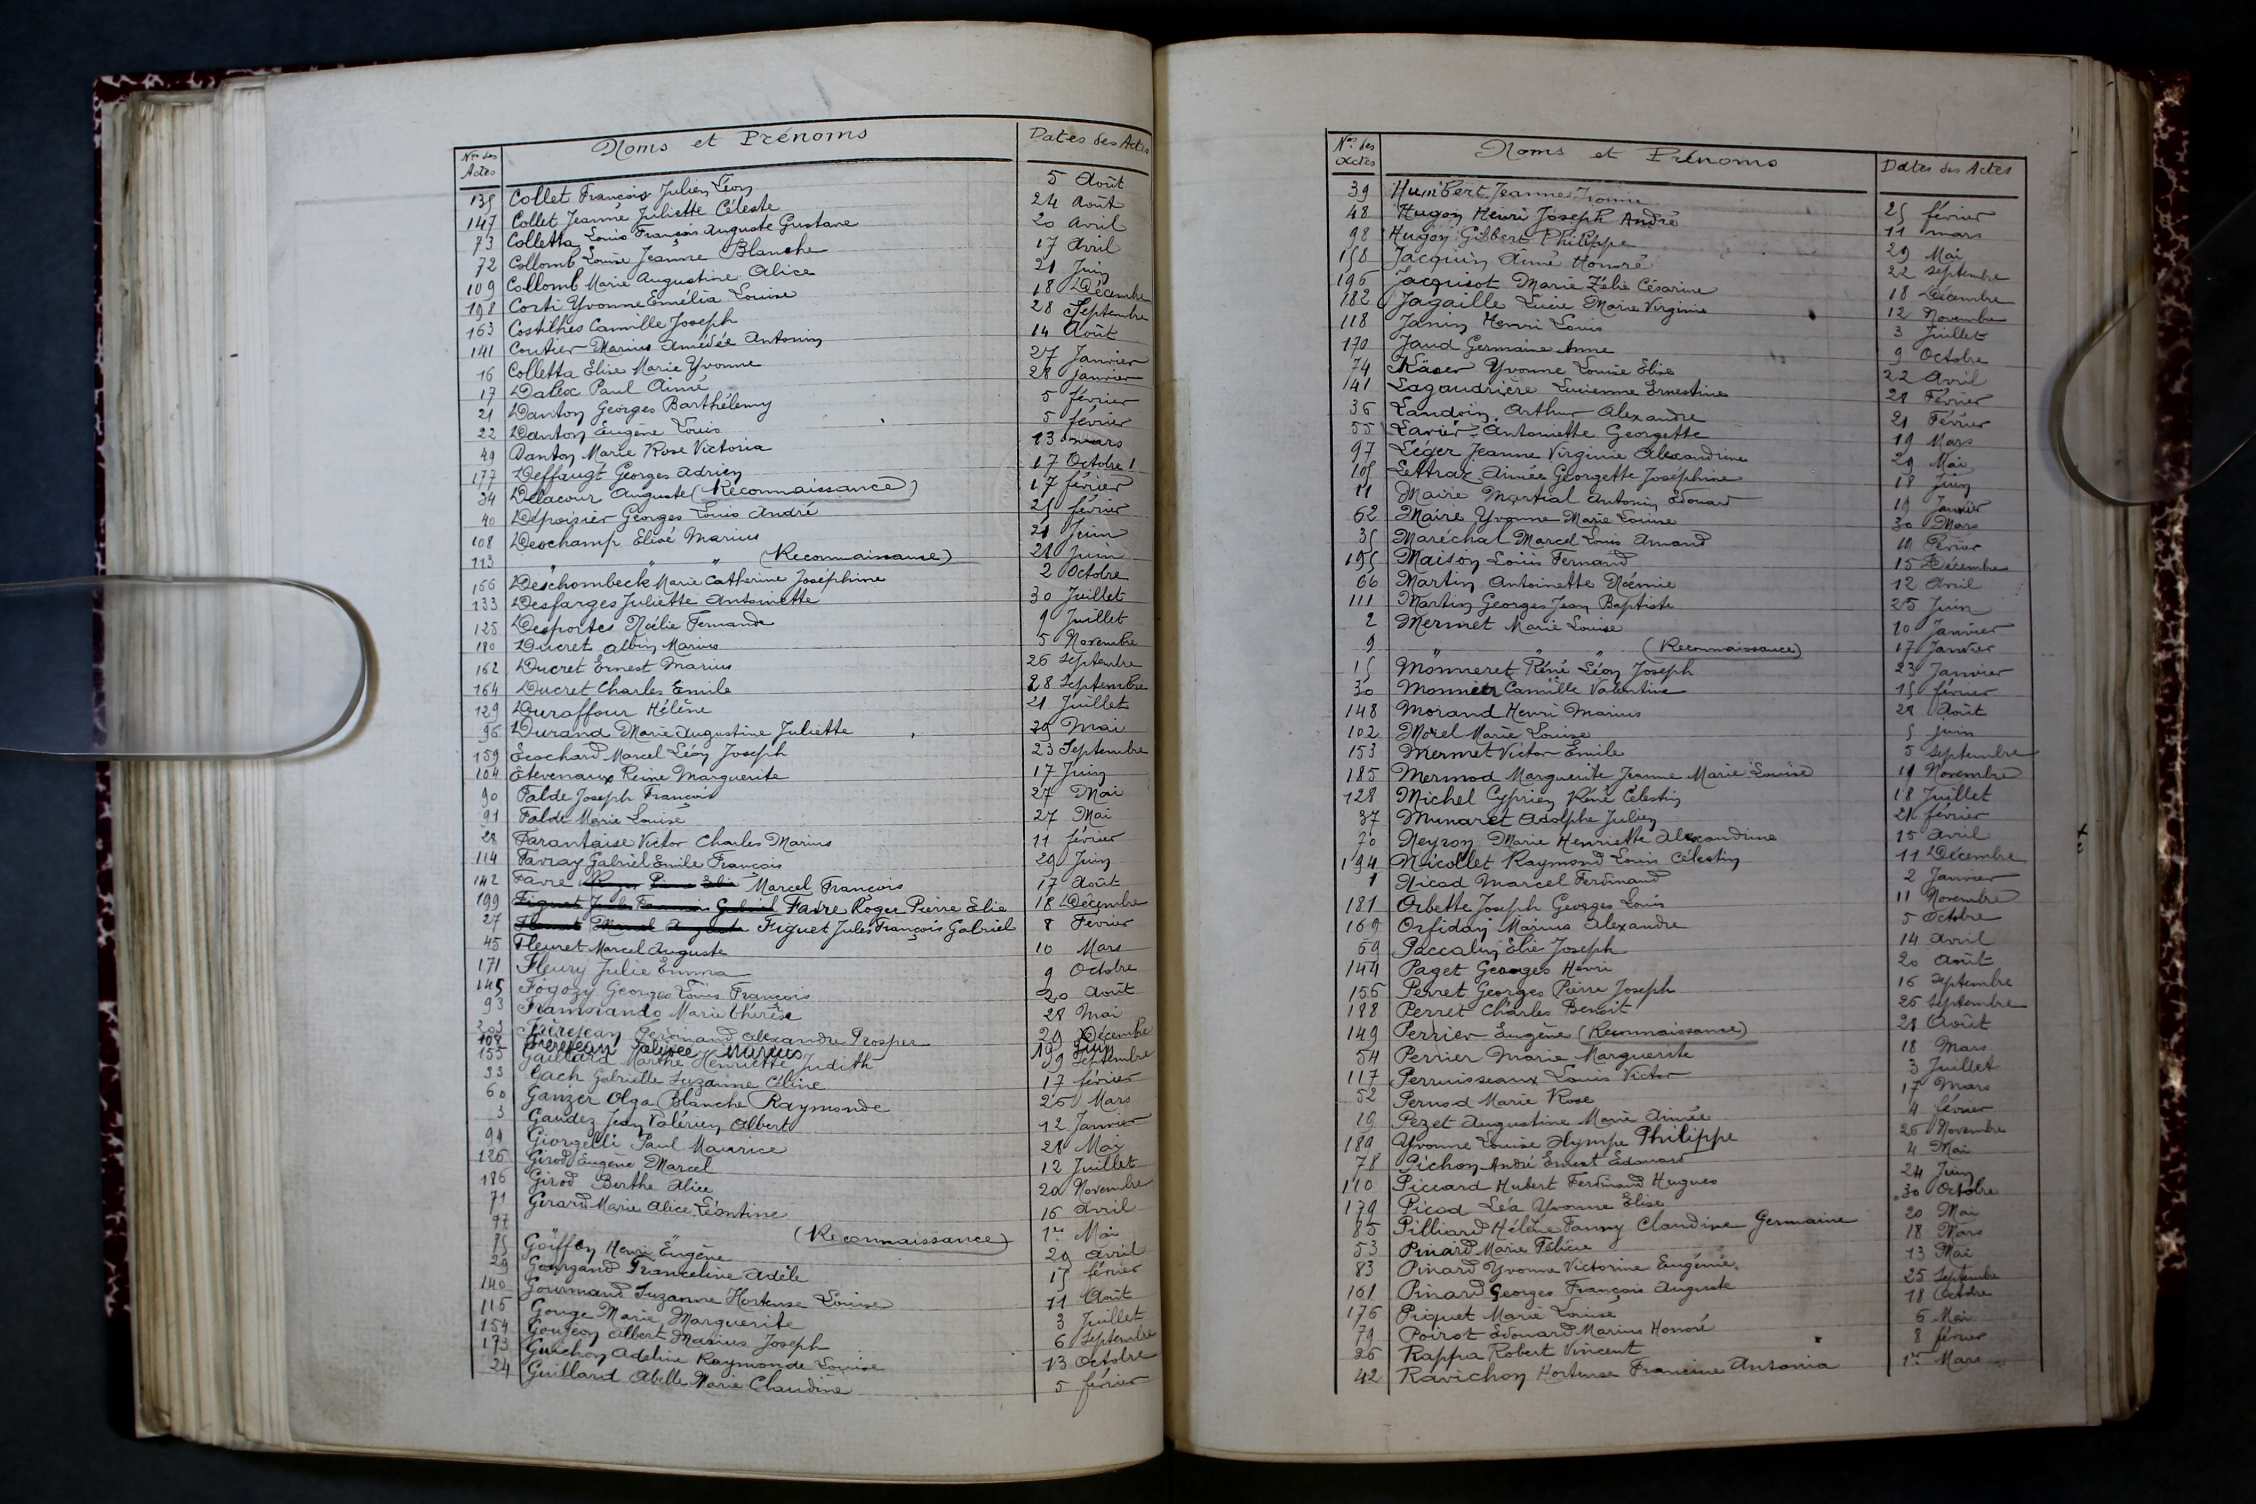 Nos des Actes Noms et Prénoms Dates des Actes
135 Collet François Julien Léon 5 Août
147 Collet Jeanne Juliette Céleste 24 Août
73 Colletta Louis François Auguste Gustave 20 Avril
72 Collomb Louise Jeanne Blanche 17 Avril
109 Collomb Marie Augustine Alice 21 Juin
198 Corti Yvonne Emélia Louise 18 Décembre
163 Costilhes Camille Joseph 28 Septembre
141 Coutier Marius Amédée Antonin 14 Août
16 Colletta Elise Marie Yvonne 27 Janvier
17 Dalex Paul Aimé 28 janvier
21 Danton Georges Barthélemy 5 février
22 Danton Eugène Louis 5 février
49 Danton Marie Rose Victoria 13 mars
177 Deffaugt Georges Adrien 17 Octobre
34 Delacour Auguste (Reconnaissance) 17 février
40 Dépoisier Georges Louis André 25 février
108 Deschamp Elisé Marius 21 Juin
113 " " " (Reconnaissance) 21 Juin
166 Deschombeck Marie Catherine Joséphine 2 Octobre
133 Desfarges Juliette Antoinette 30 Juillet
125 Desportes Noélie Fernande 9 Juillet
180 Ducret Albin Marius 5 Novembre
162 Ducret Ernest Marius 26 Septembre
164 Ducret Charles Emile 28 Septembre
129 Duraffour Hélène 21 Juillet
96 Durand Marie Augustine Juliette 29 Mai
159 Ecochard Marcel Léon Joseph 23 Septembre
104 Etevenaux Reine Marguerite 17 Juin
90 Falde Joseph François 27 Mai
91 Falde Marie Louise 27 Mai
28 Farantaise Victor Charles Marius 11 février
114 Favray Gabriel Emile François 29 Juin
142 Favre Marcel François 17 Août
199 Favre Roger Pierre Elie 18 Décembre
27 Figuet Jules François Gabriel 8 Février
45 Fleuret Marcel Auguste 10 Mars
171 Fleury Julie Emma 9 Octobre
145 Fogozy Georges Louis François 20 Août
93 Framorando Marie Thérèse 28 Mai
203 Frèrejean Ferdinand Alexandre Prosper 29 Décembre
108 Frèrejean Marius 19 Juin
155 Gaillard Marthe Henriette Judith 9 Septembre
33 Gach Gabrielle Suzanne Céline 17 février
60 Ganzer Olga Blanche Raymonde 26 Mars
3 Gaudez Jean Valérien Albert 12 Janvier
94 Giorgelli Paul Maurice 28 Mai
126 Girod Eugène Marcel 12 Juillet
186 Girod Berthe Alice 20 Novembre
71 Gérard Marie Alice Léontine 16 Avril
97 " " (Reconnaissance) 1er Mai
75 Goiffon Henri Eugène 29 Avril
29 Gourgand Franceline Adèle 15 février
140 Gourmand Suzanne Hortense Louise 11 Août
115 Gouge Marie Marguerite 3 Juillet
154 Goujon Albert Marius Joseph 6 Septembre
173 Guichon Adeline Raymonde Louise 13 Octobre
24 Guillard Abelle Marie Claudine 5 février
Nos des Actes Noms et Prénoms Dates des Actes
39 Humbert Jeanne 25 février
48 Hugon Henri Joseph André 11 mars
98 Hugon Gilbert Philippe 29 Mai
158 Jacquin Aimé Honoré 22 Septembre
196 Jacquisot Marie Zélie Césarine 18 Décembre
182 Jagaille Lucie Marie Virginie 12 Novembre
118 Janin Henri Louis 3 Juillet
170 Jaud Germaine Anne 9 Octobre
74 Käser Yvonne Louise Elise 22 Avril
141 Lagaudrière Lucienne Ernestine 28 Février
36 Landoin Arthur Alexandre 21 Février
55 Lavier Antoinette Georgette 19 Mars
97 Léger Jeanne Virginie Alexandrine 29 Mai
105 Lettrax Aimée Georgette Joséphine 18 Juin
11 Maire Martial Antonin Edouard 19 Janvier
62 Maire Yvonne Marie Louise 30 Mars
35 Maréchal Marcel Louis Armand 19 Février
195 Maison Louis Fernand 15 Décembre
66 Martin Antoinette Noémie 12 Avril
111 Martin Georges Jean Baptiste 25 Juin
2 Mermet Marie Louise 10 Janvier
9 " " " (Reconnaissance) 17 Janvier
15 Monneret Réné Léon Joseph 23 Janvier
30 Monnier Camille Valentine 15 février
148 Morand Henri Marius 28 Août
102 Morel Marie Louise 5 juin
153 Mermet Victor Emile 5 Septembre
185 Mermod Marguerite Jeanne Marie Louise 19 Novembre
128 Michel Cyprien Réné Célestin 18 Juillet
37 Munaret Adolphe Julien 21 février
70 Neyron Marie Henriette Alexandrine 15 Avril
194 Nicollet Raymond Louis Célestin 11 Décembre
1 Nicod Marcel Ferdinand 2 Janvier
181 Orbette Joseph Georges Louis 11 Novembre
169 Orfidan Marius Alexandre 5 Octobre
69 Paccalin Elie Joseph 14 Avril
144 Paget Georges Henri 20 Août
156 Perret Georges Pierre Joseph 16 Septembre
188 Perret Charles Benoit 26 Septembre
149 Perrier Eugène (Reconnaissance) 28 Août
54 Perrier Marie Marguerite 18 Mars
117 Perruisseaux Louis Victor 3 Juillet
52 Pernod Marie Rose 17 Mars
19 Pezet Augustine Marie Aimée 4 février
189 Yvonne Louise Olympe Philippe 26 Novembre
78 Pichon André Ernest Edouard 4 Mai
110 Piccard Hubert Ferdinand Hugues 24 Juin
179 Picod Léa Yvonne Elise 30 Octobre
85 Pilliard Hélène Fanny Claudine Germaine 20 Mai
53 Pinard Marie Félicie 18 Mars
83 Pinard Yvonne Victorine Eugénie 13 Mai
161 Pinard Georges François Auguste 25 Septembre
176 Piquet Marie Louise 18 Octobre
79 Poirot Edouard Marius Honoré 6 Mai
26 Rappa Robert Vincent 8 février
42 Ravichon Hortense Francine Antonia 1er Mars